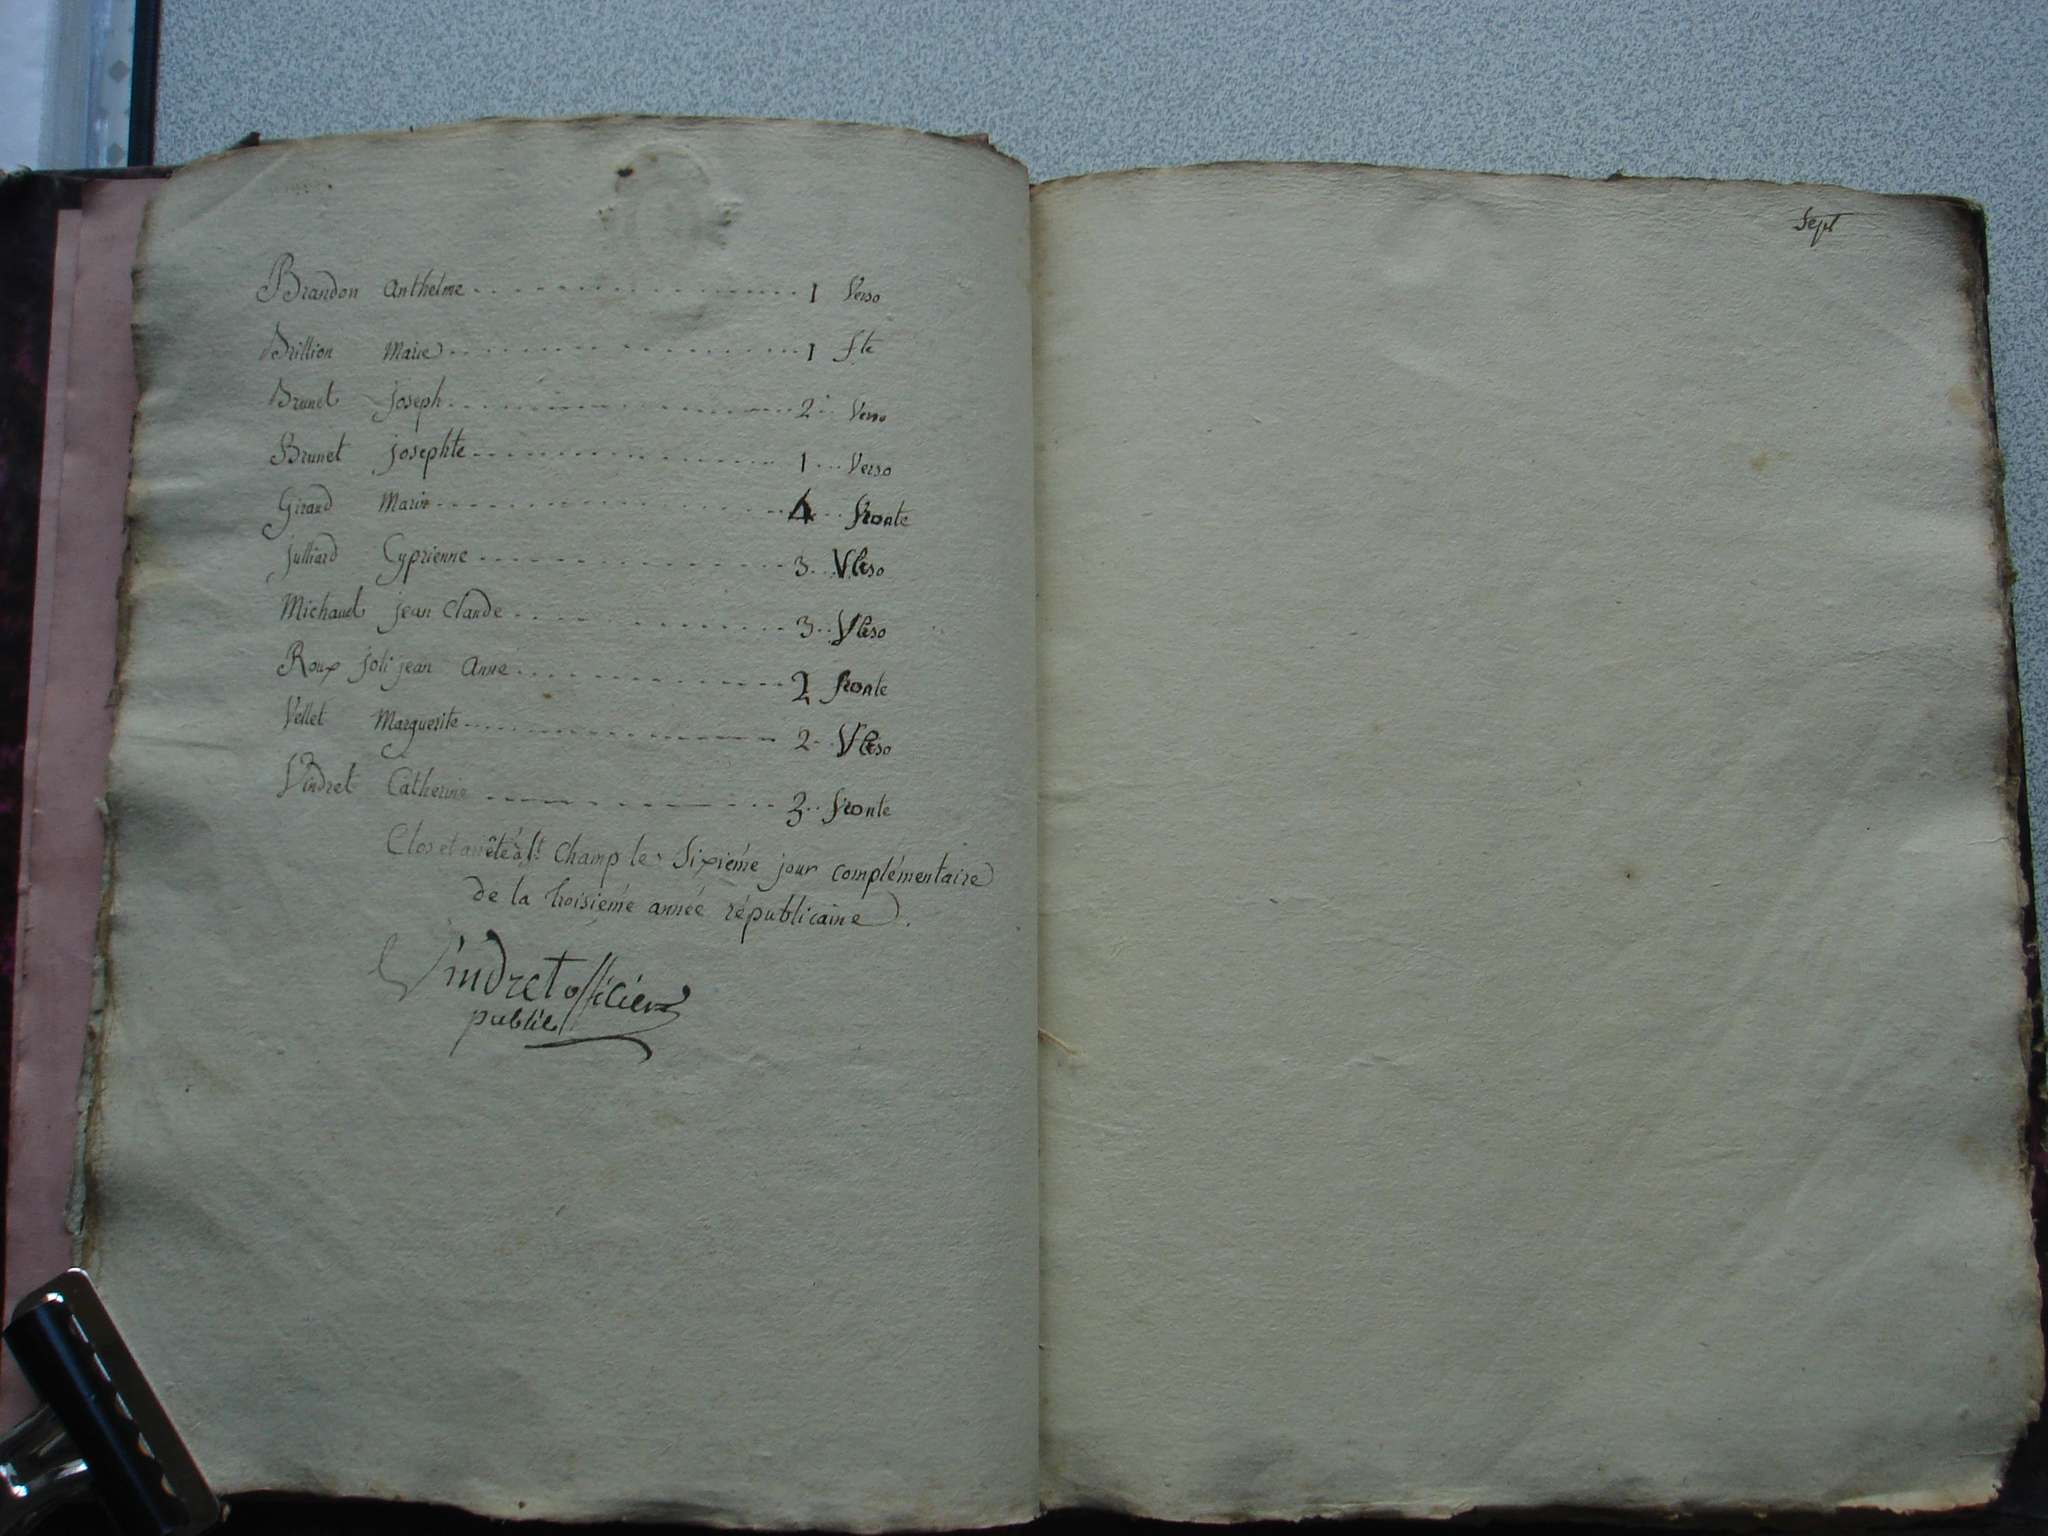 Brandon Anthelme 1 Verso
Brillion Marie 1 fte
Brunet joseph 2 Verso
Brunet josephte 1 Verso
Giraud Marie 4 fronte
Julliard Cyprienne 3 Verso
Michaud jean Claude 3 Verso
Roux joli jean Anne 2 fronte
Vellet Marguerite 2 Verso
Vindret Catherine 3 fronte
Clos et arrêté à St Champ le Sixiéme jour complémentaire
de la troisiéme année républicaine.
Vindret officier
public
Sept